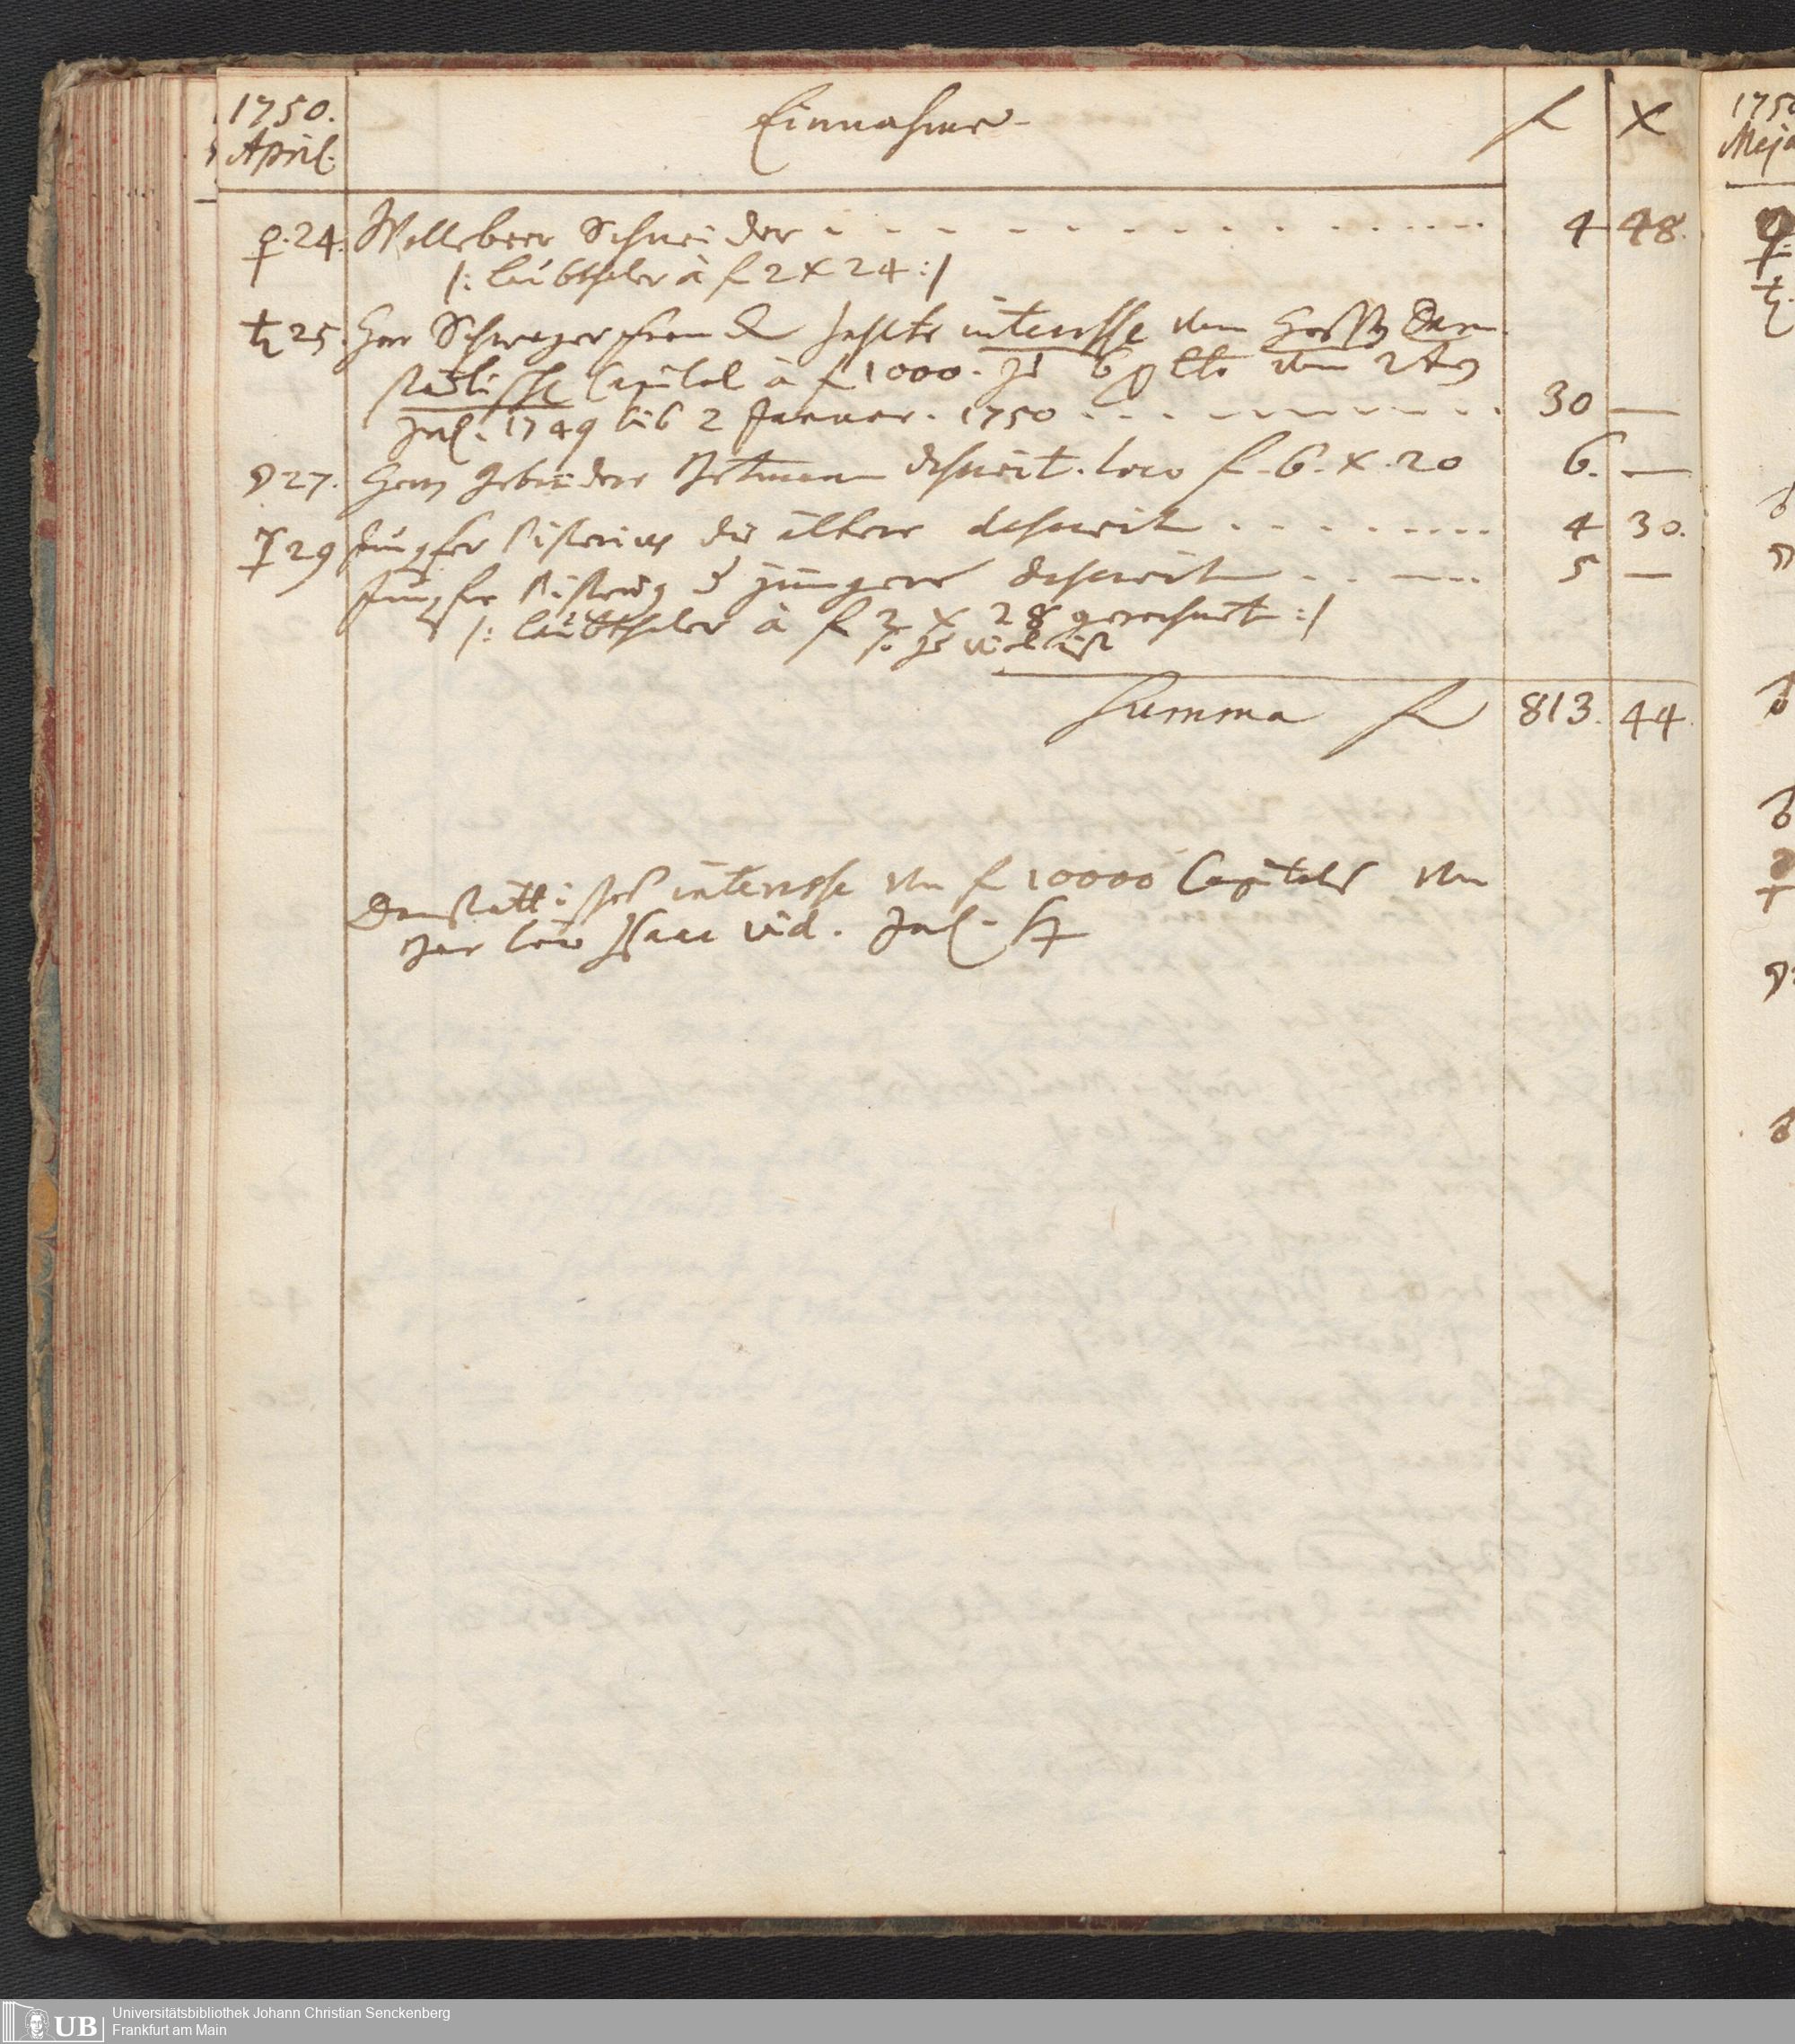 1750.
April.
Einnahme
f
x
♀. 24. Wellebeer Schneider 4 48.
/: laubthaler à f 2 x 24 :/
♄ 25. Herr Schwager zahlte interesse vom Hess. Darm
stättische Capital à f 1000. zu 6 p Cto vom 2ten
Jul. 1749 biß 2 Januar. 1750 30 —
☽ 27. Herrn Gebrüdere Betmann deservit. loco f. 6. x. 20 6. —
☿ 29 Jungfer Pistorius die ältere deservit 4 30.
Jungfer Pistorius d jüngere deservit 5 —
/: laubthaler à f 2 x 28 gerechnet :/
so zu viel ist
Summa f 813. 44.
Darmstättisches interesse von f 10000 Capitals von
Isaac vid. Jul.
1750
Majo
UB
Universitätsbibliothek Johann Christian Senckenberg
Frankfurt am Main